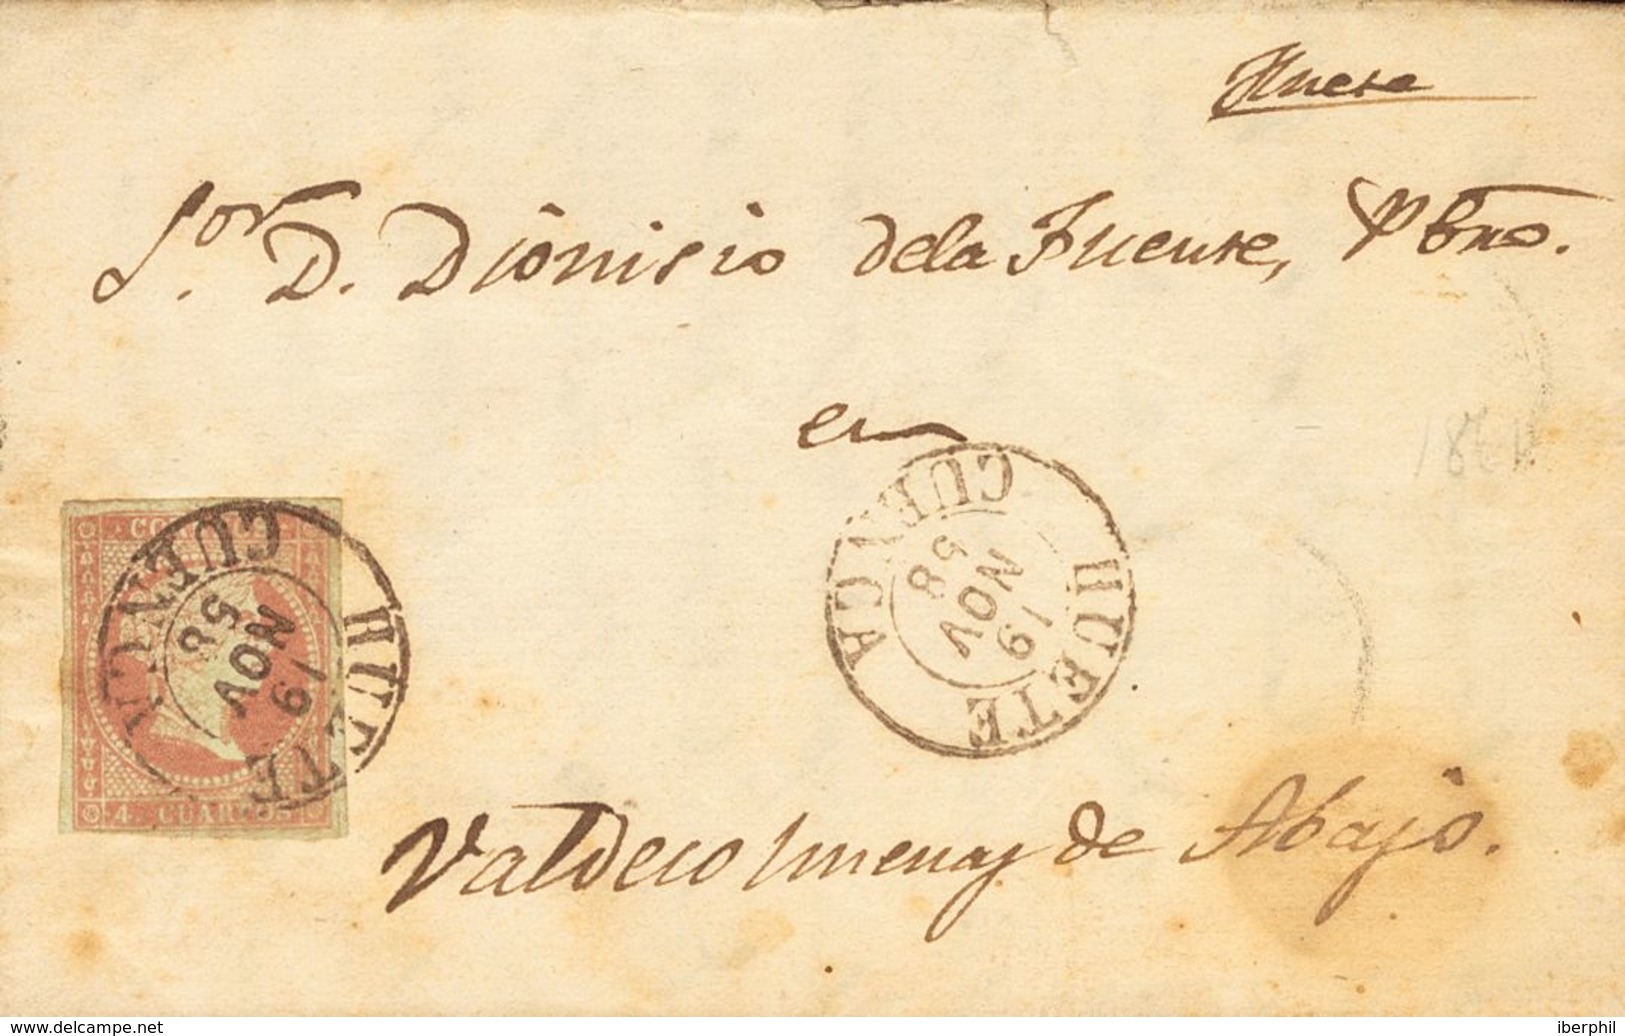 Huete
Sor. D. Dionisio dela Fuente, Pbro.
en
CUENCA
58
NOV
19
HUETE
CORREOS
CUENCA
58
NOV
19
HUETE
4 CUARTOS
Valdecolmenas de Abajo.
www.delcampe.net
iberphil